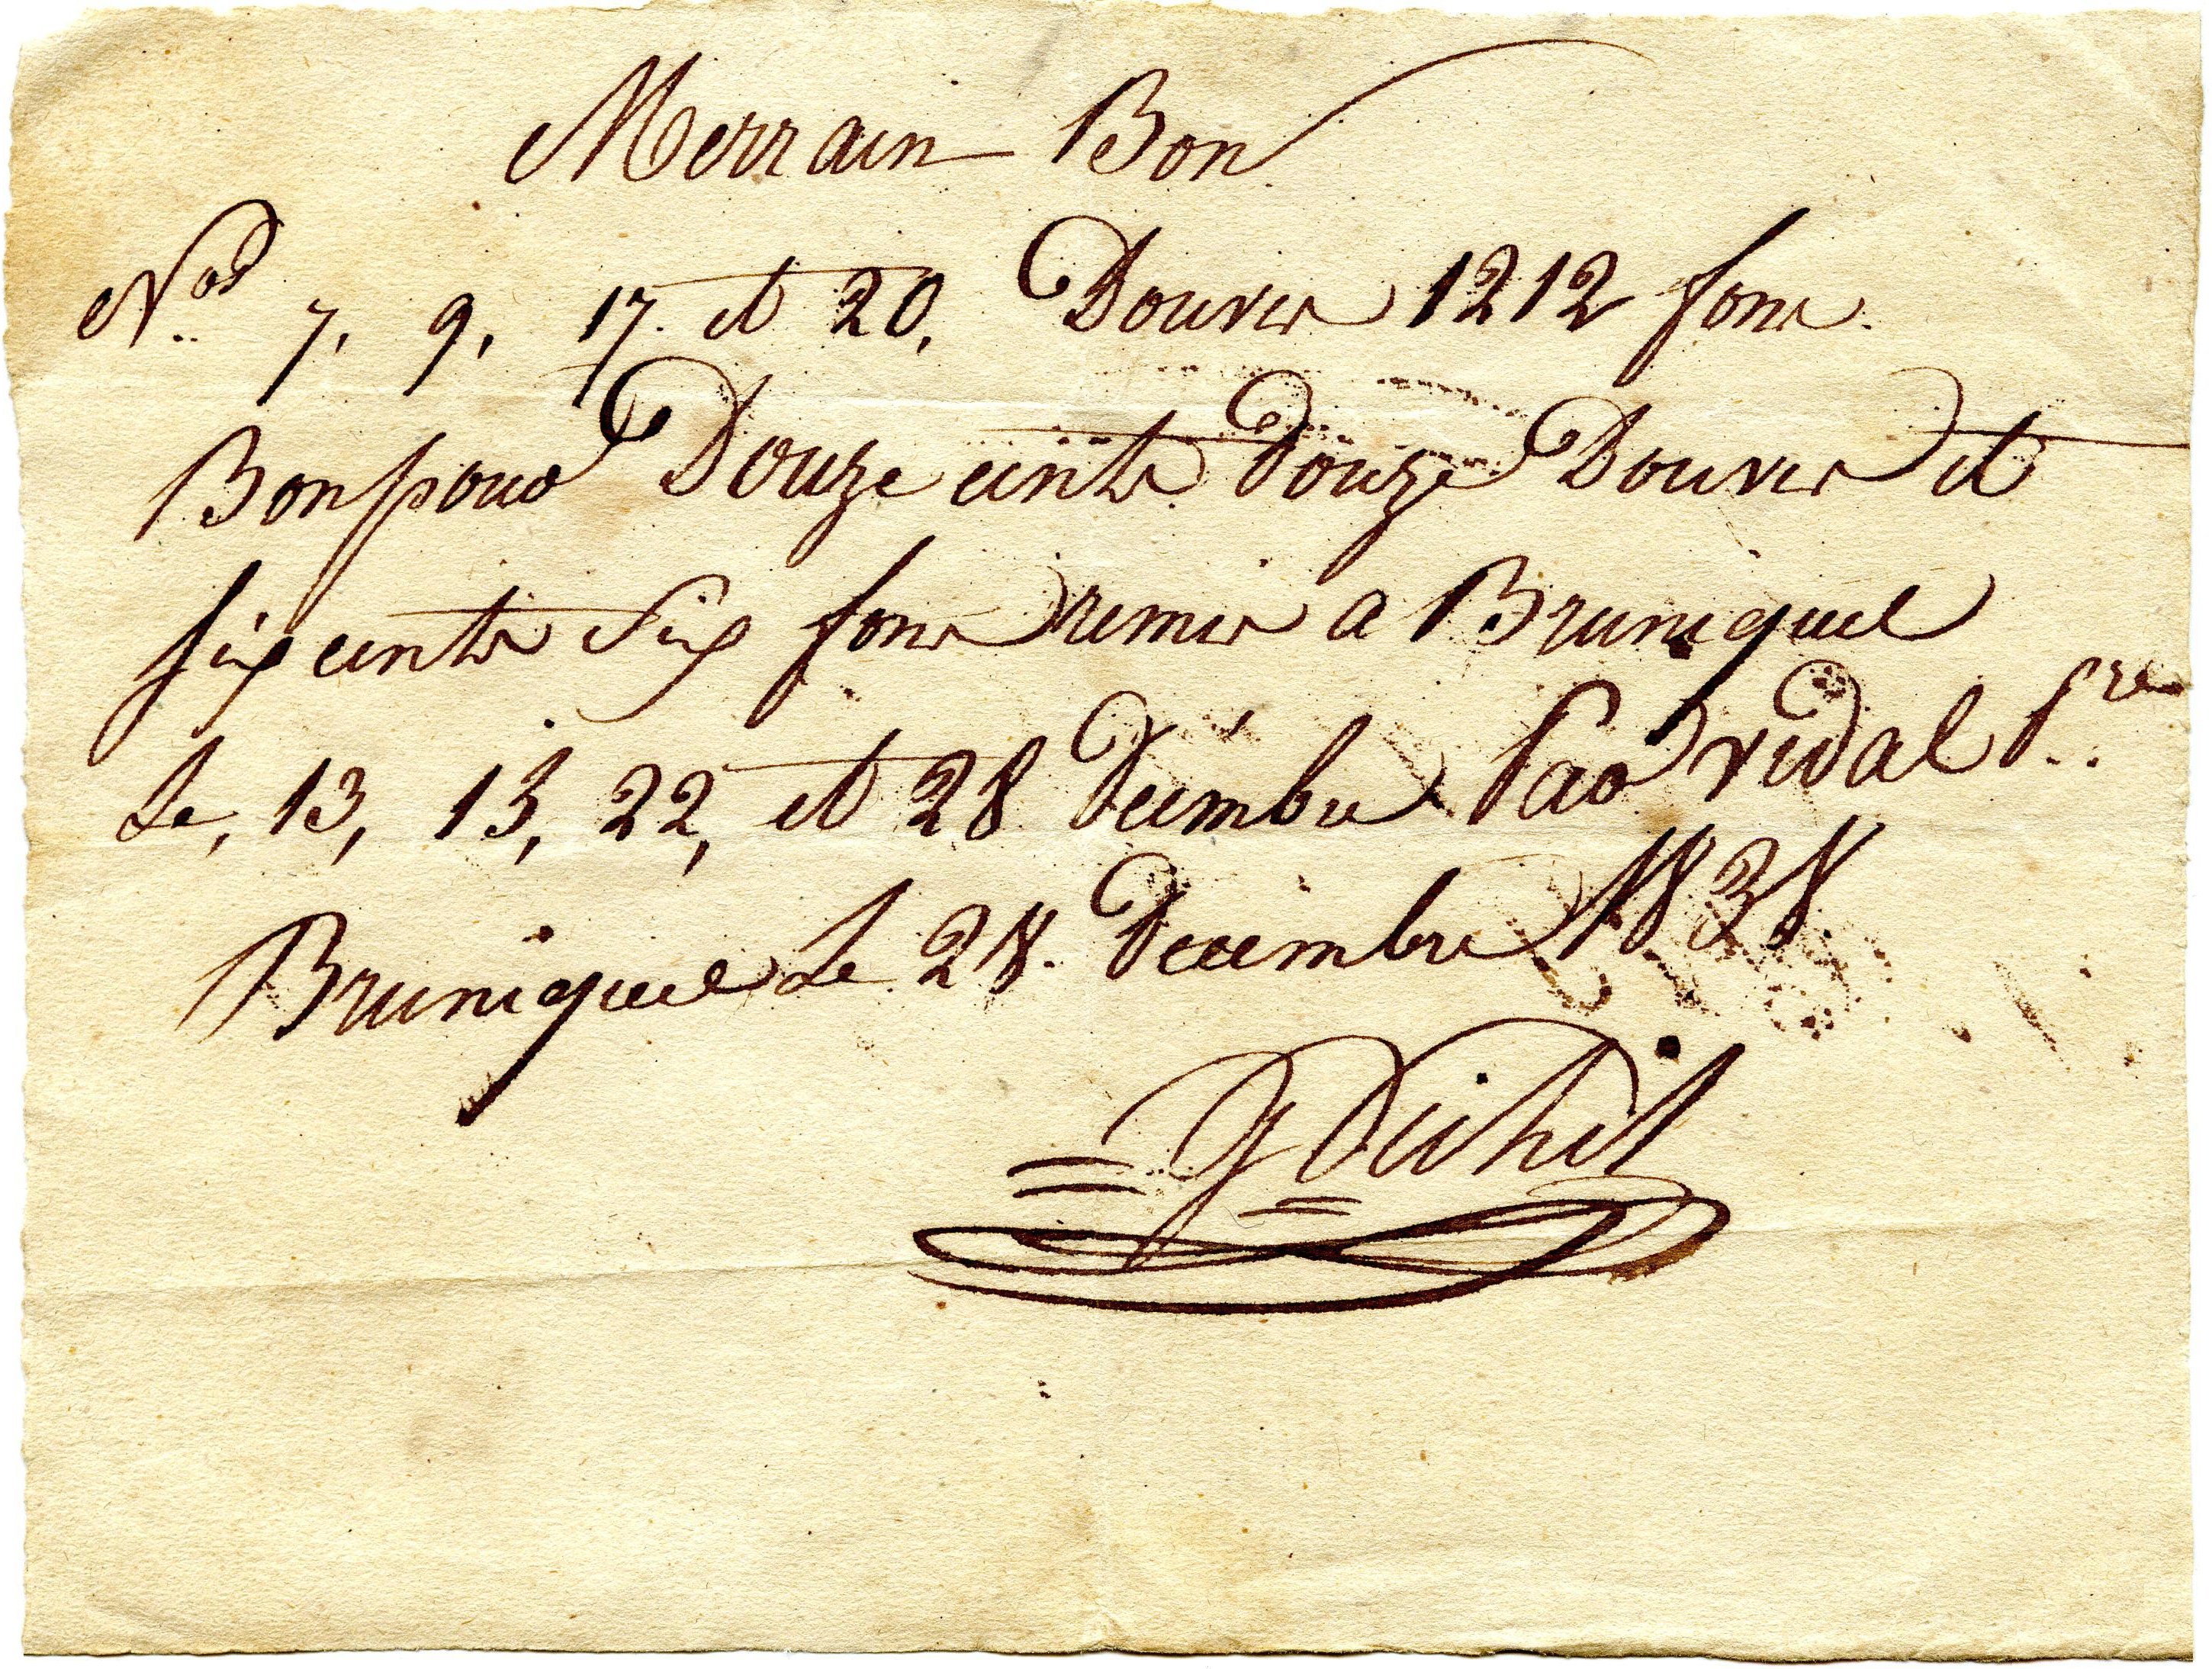 Merrain Bon
Nos 7, 9, 17. et 20, Douves 1212 fons.
Bon pour Douze cents douze Douves et
six cents six fons remis a Bruniquel
Le, 13, 13, 22, et 28 decembre Par vidal Pre
Bruniquel Le 28. decembre 1838